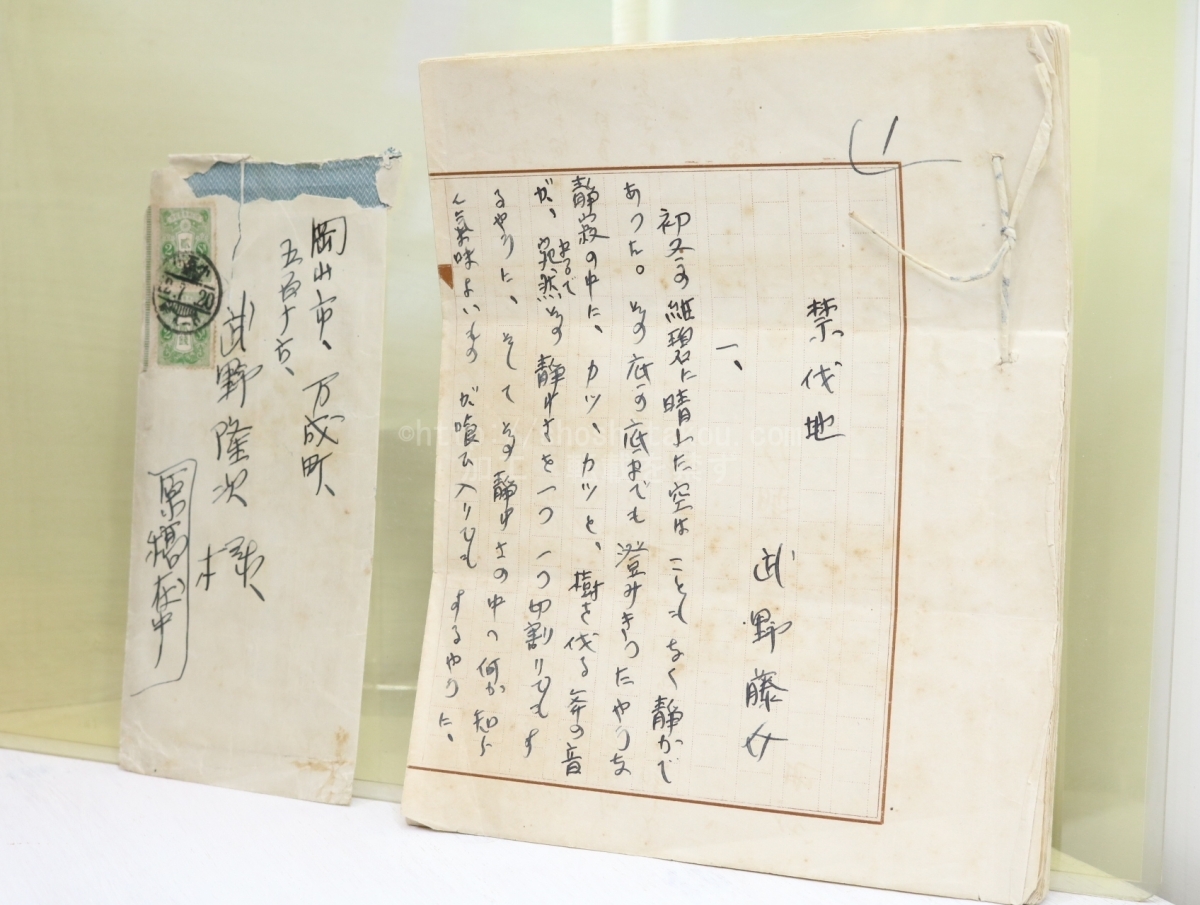 1
禁伐地
武野藤女
一、
初冬の紺碧に晴れた空は こともなく静かで
あつた。その底の底までも 澄みきつたやうな
静寂の中に、カツ、カツと、樹を伐る斧の音
が、宛然その静けさを一つ一つ切割りでもす
まるで
るやうに、そして その静けさの中へ何か知ら
ん気味よいもの が喰ひ入りでも するやうに、
岡山市、万成町、
武野隆次 様、
原稿在中
20